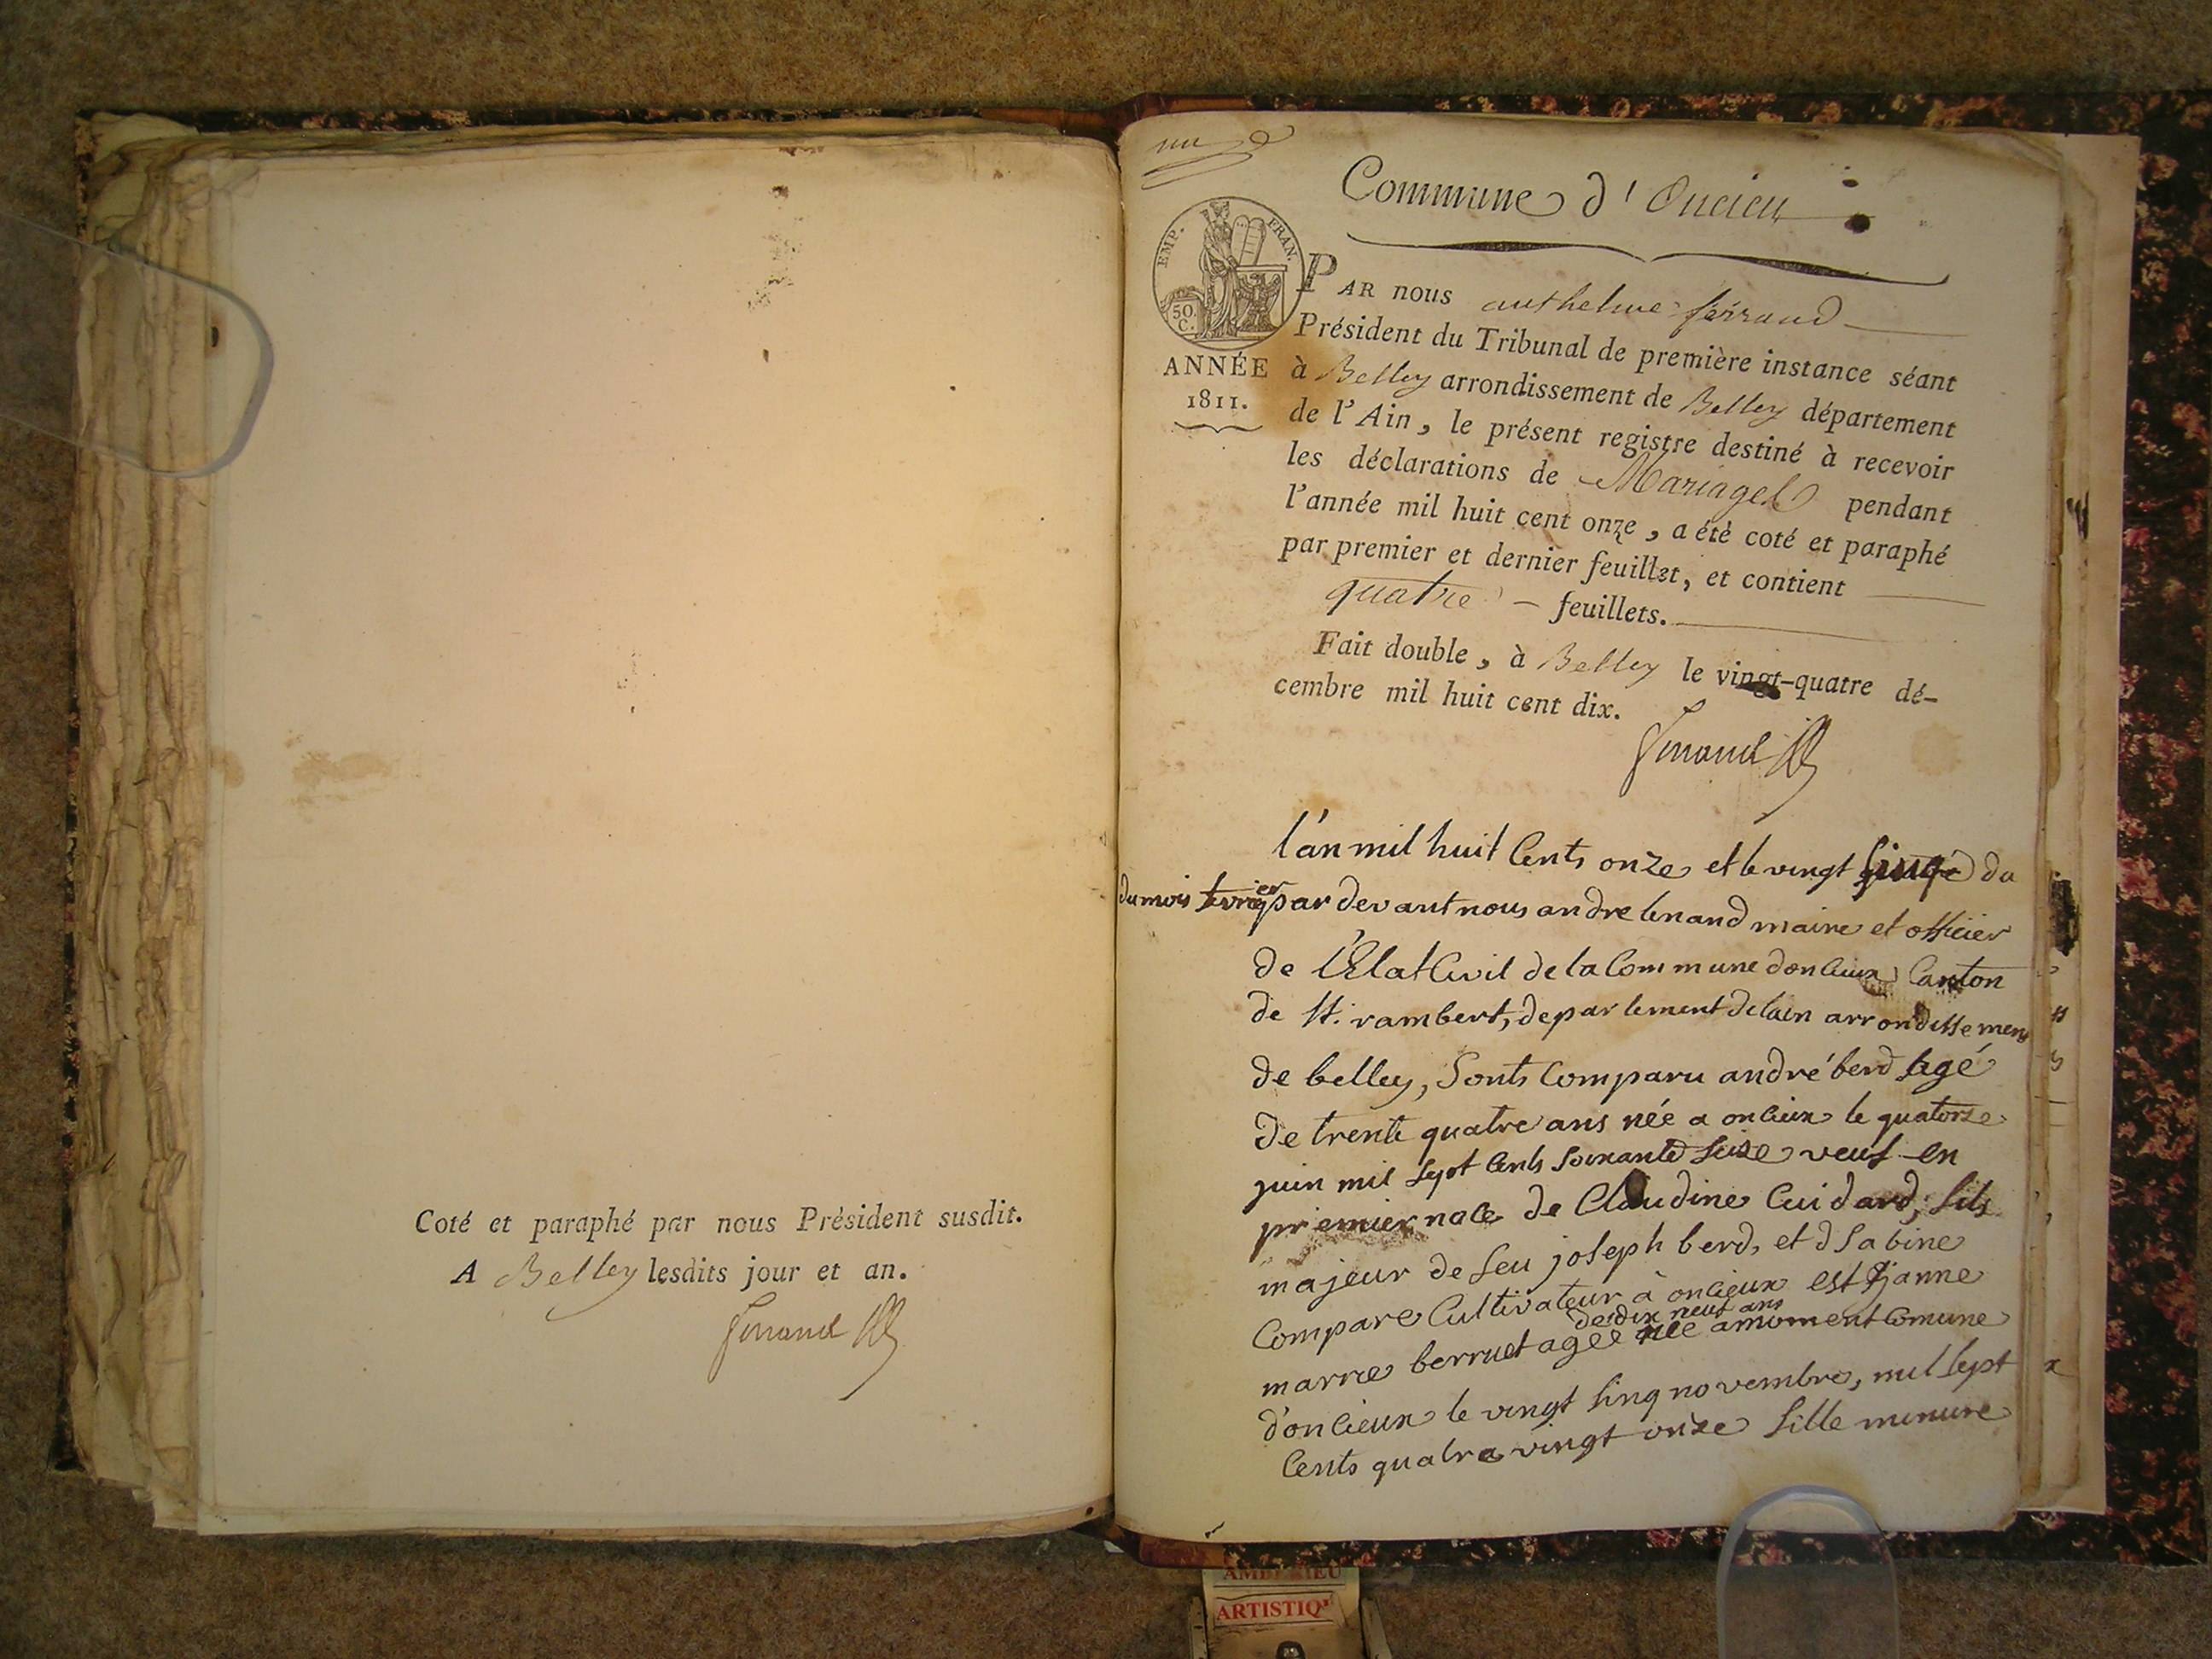 Coté et paraphé par nous Président susdit.
A Belley lesdits jour et an.
un
Commune d'Oncieu
EMP. FRAN.
50. C.
ANNÉE
1811.
PAR nous anthelme ferrand
Président du Tribunal de première instance séant
à Belley arrondissement de Belley département
de l'Ain, le présent registre destiné à recevoir
les déclarations de Mariages pendant
l'année mil huit cent onze, a été coté et paraphé
par premier et dernier feuillet, et contient
quatre feuillets.
Fait double, à Belley le vingt-quatre dé-
cembre mil huit cent dix.
l'an mil huit Cents onze et le vingt sinq du
du mois fevrier par devant nous andre tenand maire et officier
de l'Etat Civil de la Commune donlieux Canton
de st. rambert, departement delain arrondissement
de belley, Sonts Comparu andré berd agé
de trente quatre ans née a onlieux le quatorze
juin mil sept Cents soixante seize veuf en
premier de Claudine Cuidard, fils
majeur de feu joseph berd, et d sabine
Compare Cultivateur à onlieux est janne
marie berruet agée de dix neuf ans née amoment Comune
d'onlieux le vingt sinq novembre, mil sept
Cents quatre vingt onze fille mineure
AMBERIEU
ARTISTIQ